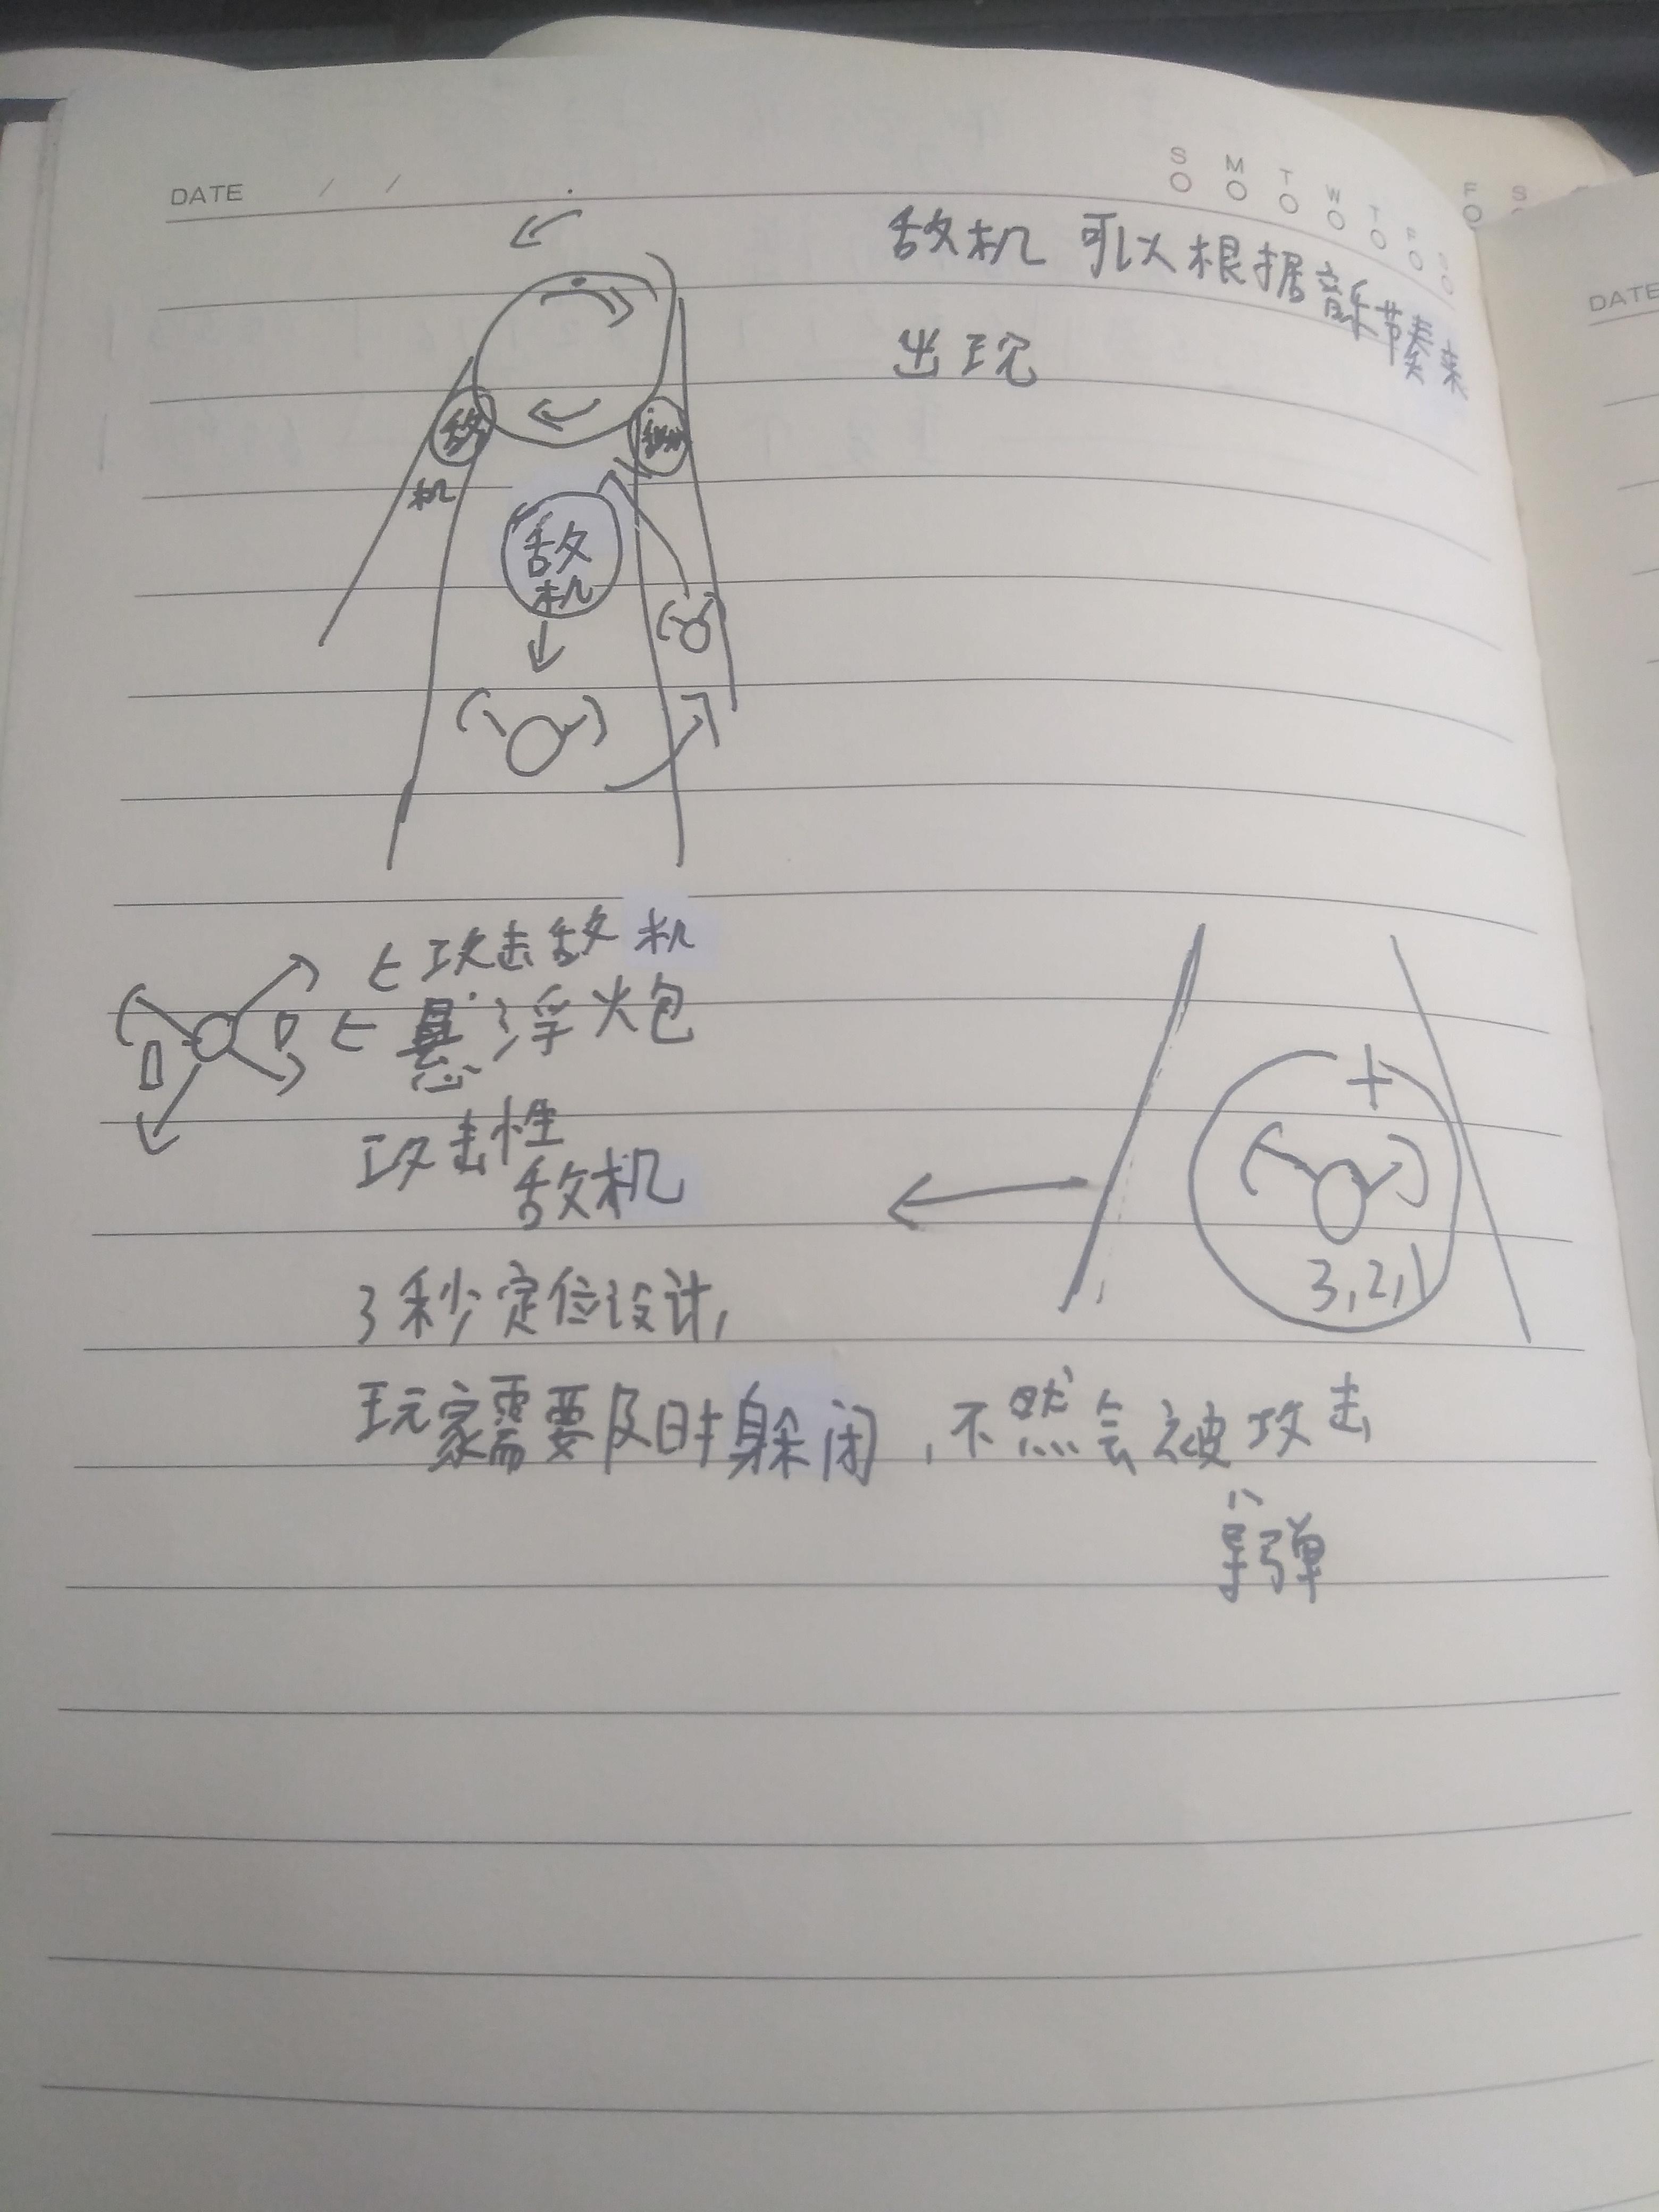 DATE / /
S M T W T F S
F S
DATE
敌机可以根据音乐节奏来
出现
敌
机
敌
机
攻击敌机
悬浮火包
攻击性
敌机
3,2,1
3秒定位设计,
玩家需要及时躲闭,不然会被攻击
导弹